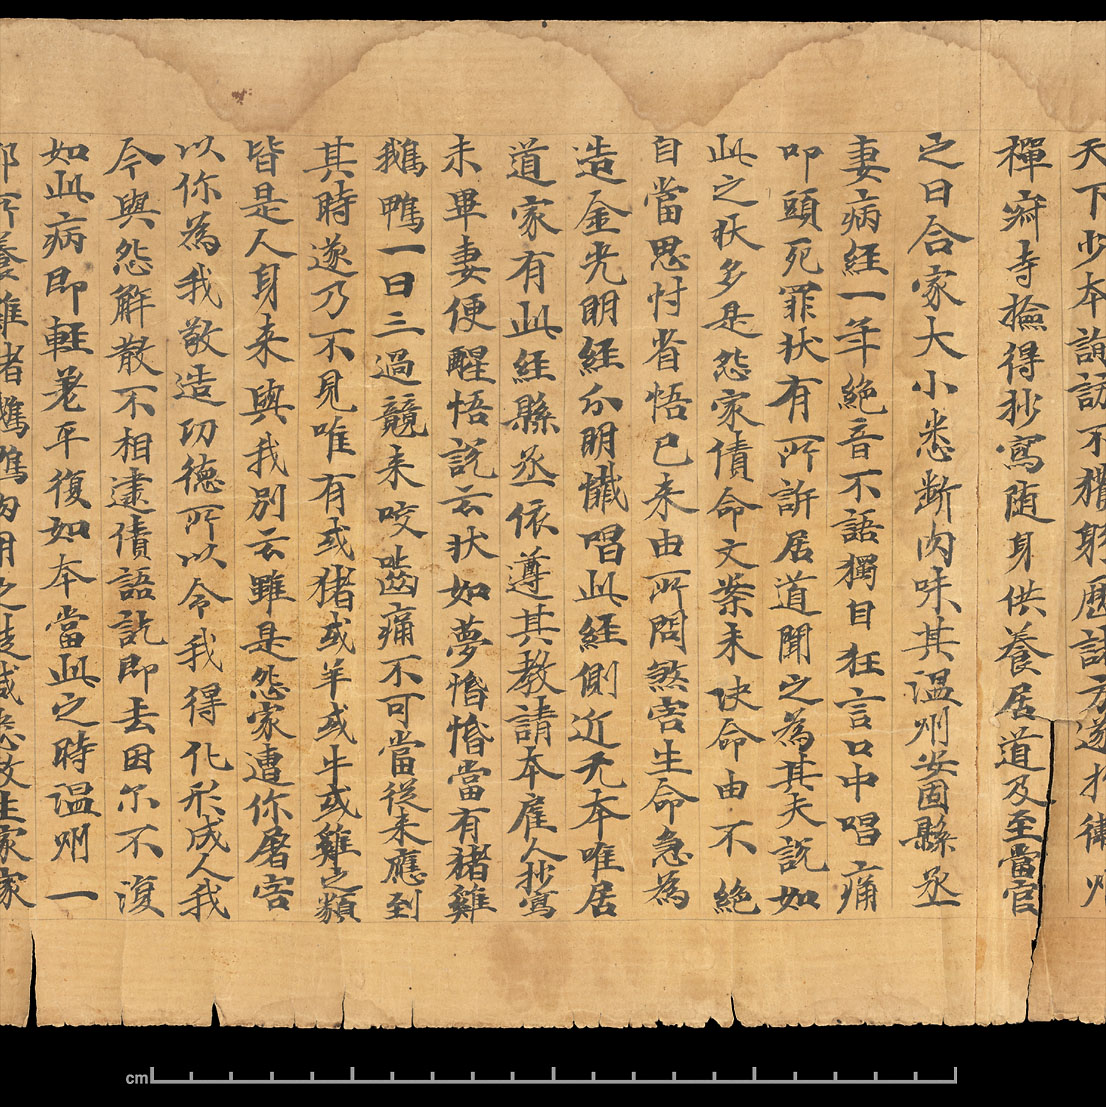 天下少本詢訪不獲躬歷諸方遂於衛州
禪寂寺撿得抄寫随身供養居道及至當官
之日合家大小悉断肉味其温州安固縣丞
妻病經一年絶音不語獨自狂言口中唱痛
叩頭死罪状有所訴居道聞之為其夫説如
此之状多是怨家債命文案未决命由不絶
自當思忖省悟已来由所問煞害生命急為
造金光明經分明懴唱此經側近无本唯居
道家有此經縣丞依遵其教請本雇人抄寫
未畢妻便醒悟説云状如夢惛惛當有猪雞
鵝鴨一日三過競来咬齧痛不可當從来應到
其時遂乃不見唯有或猪或羊或牛或雞之類
皆是人身来與我別云雖是怨家遭你屠害
以你為我敬造功德所以令我得化形成人我
今與怨解散不相逮債語訖即去因尓不復
如此病即輕差平復如本當此之時温州一
郡所養雞猪鵝鴨肉用之徒咸悉放生家家